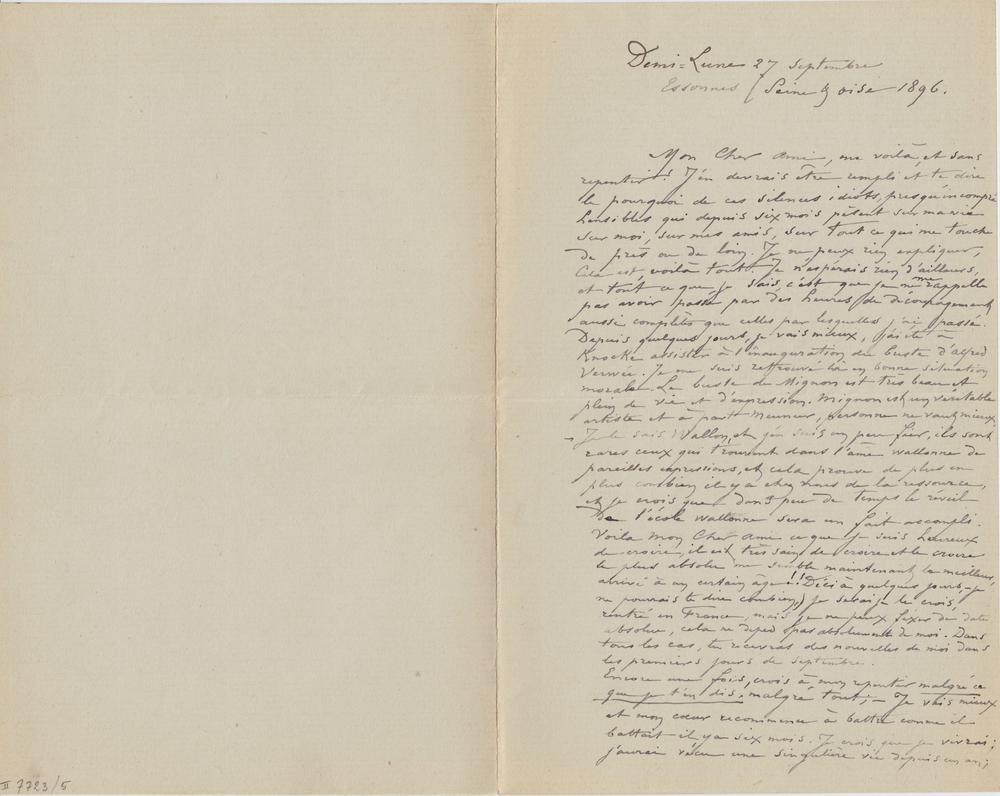 Demi-Lune 27 septembre
Essonnes (Seine & oise 1896.
Mon Cher Ami, me voilà, et sans
repentir! J'en devrais être rempli et te dire
le pourquoi de ces silences idiots, presqu'incompré
hensibles qui depuis six mois pèsent sur ma vie
sur moi, sur mes amis, sur tout ce qui me touche
de près ou de loin. Je ne peux rien expliquer,
Cela est, voilà tout. Je n'espérais rien d'ailleurs,
et tout ce que je sais, c'est que je ne me rappelle
pas avoir passé par des heures de découragement
aussi complètes que celles par lesquelles j'ai passé.
Depuis quelques jours, je vais mieux, j'ai été à
Knocke assister à l'inauguration du buste d'alfred
Verwée. Je me suis retrouvé là en bonne situation
morale. Le buste de Mignon est très beau et
plein de vie et d'expression. Mignon est un véritable
artiste et à part Meunier, personne ne vaut mieux.
Je le sais Wallon, et j'en suis un peu fier, ils sont
rares ceux qui trouvent dans l'âme wallonne de
pareilles expressions, et cela prouve de plus en
plus combien il y a chez nous de la ressource,
et je crois que dans peu de temps le réveil
de l'école wallonne sera un fait accompli.
Voilà mon Cher Ami ce que je suis heureux
de croire, il est très sain de croire et le croire
le plus absolu me semble maintenant le meilleur,
arrivé à un certain âge!! D'ici à quelques jours, (je
ne pourrais te dire combien,) je serai je le crois,
rentré en France, mais je ne peux fixer de date
absolue, cela ne dépend pas absolument de moi. Dans
tous les cas, tu recevras des nouvelles de moi dans
les premiers jours de septembre.
Encore une fois, crois à mon repentir malgré ce
que je t'en dis, malgré tout; — Je vais mieux
et mon cœur recommence à battre comme il
battait il y a six mois. Je crois que je vivrai;
j'aurai vécu une singulière vie depuis un an;
II 7723/5